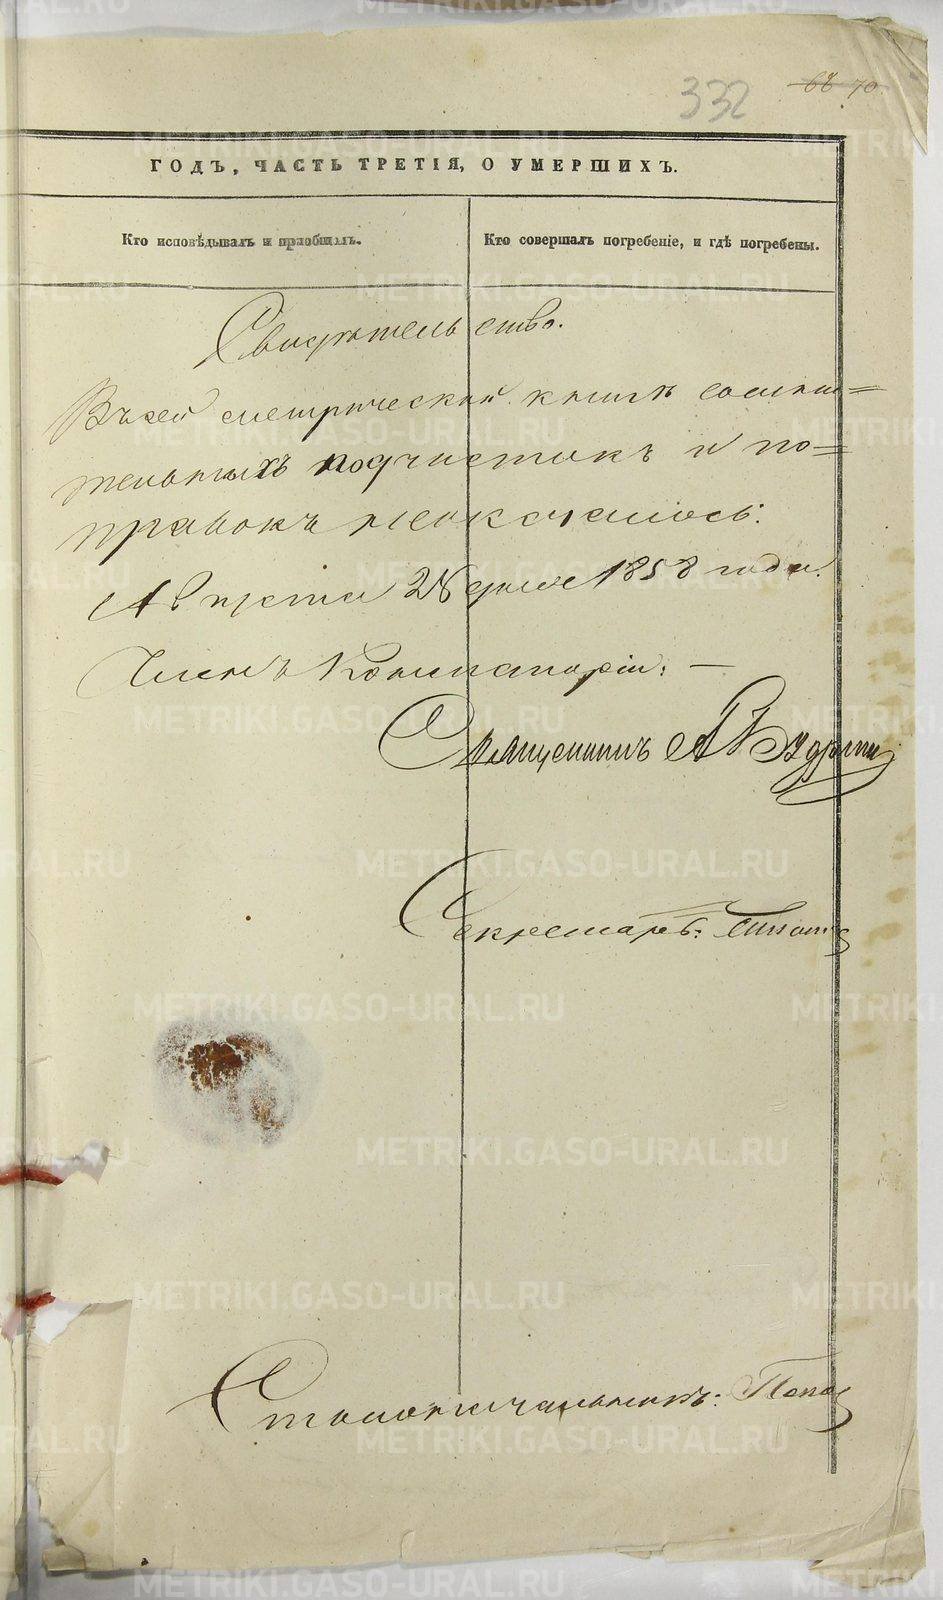 332
68 70
ГОДЪ, ЧАСТЬ ТРЕТІЯ, О УМЕРШИХЪ.
Кто исповѣдывалъ и пріобщалъ.
Кто совершалъ погребеніе, и гдѣ погребены.
Свидѣтельство.
Въ сей метрической книгѣ сомни=
тельныхъ подчистокъ и по=
правокъ неоказалось:
Августа 28 дня 1858 года.
Членъ Консисторіи: —
Священникъ А
Секретарь:
Столоначальникъ: Попов
METRIKI.GASO-URAL.RU